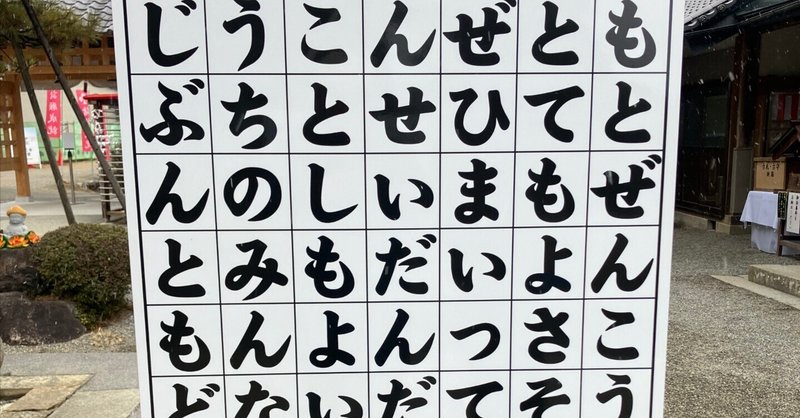 もとぜんこう
とてもよさそ
ぜひまいって
んせいだんだ
ことしもよい
うちのみんな
じぶんともど